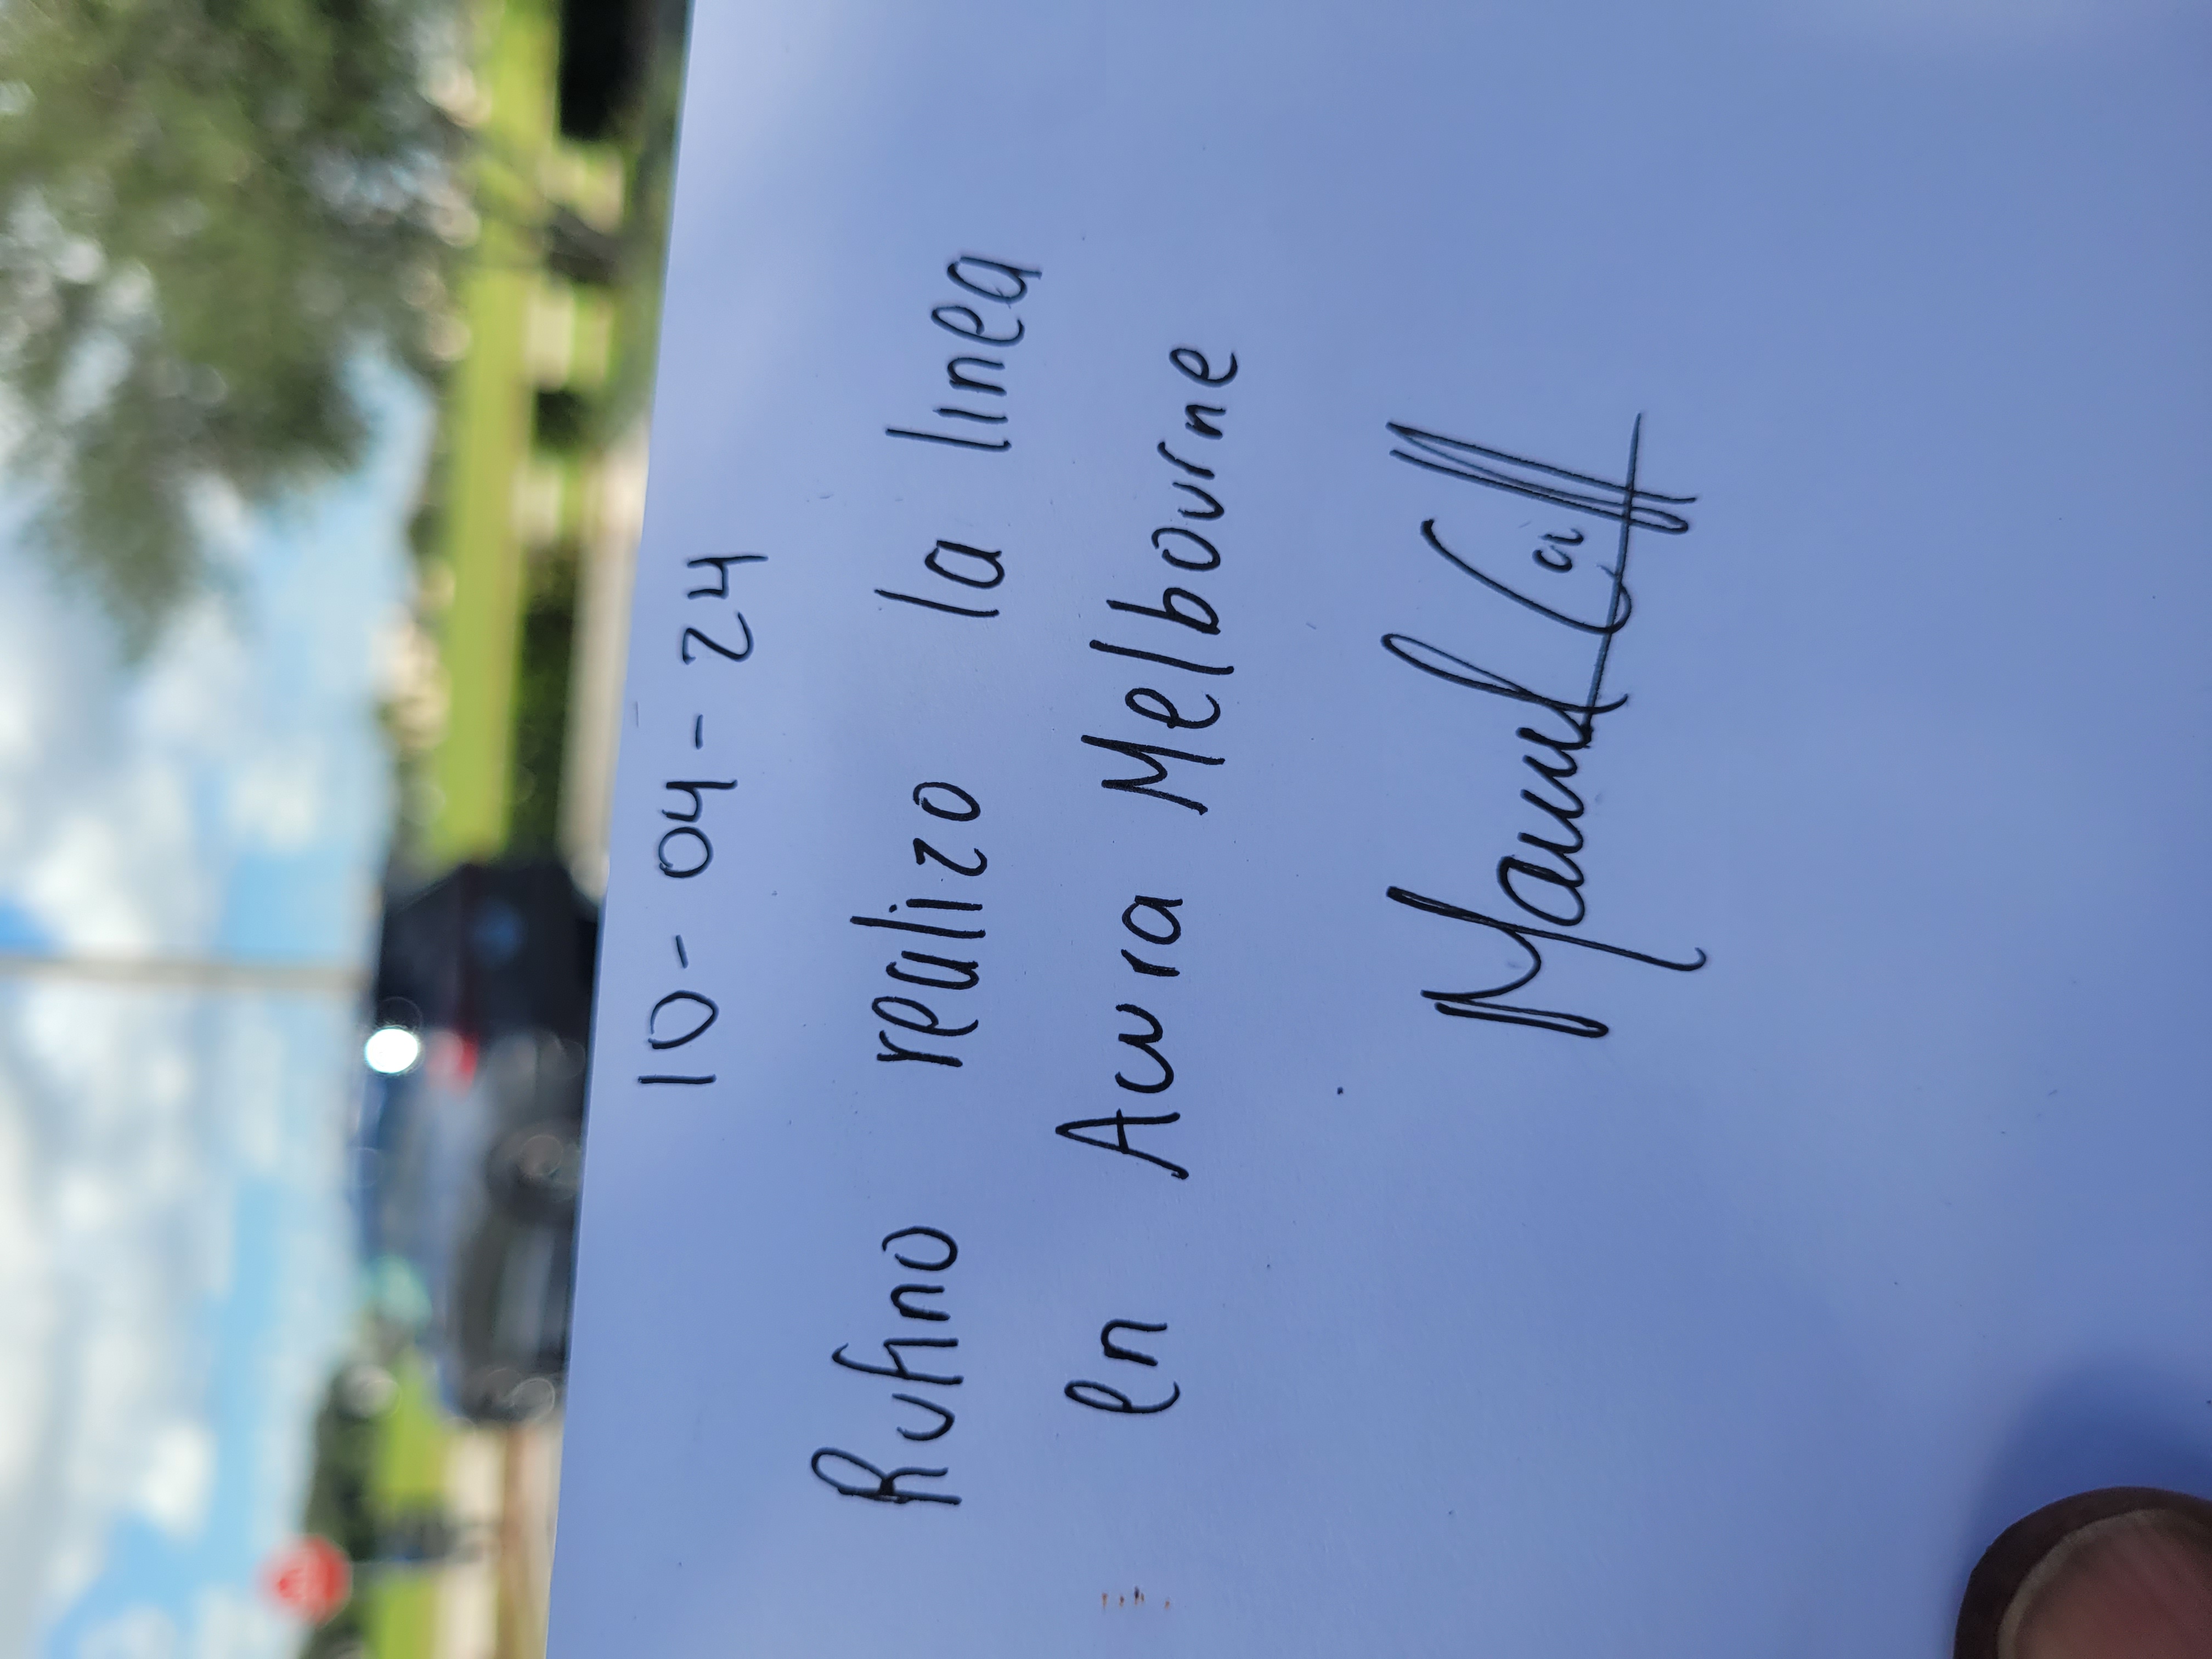 10-04-24
Rufino realizo la linea
en Acura Melbourne
Manuel